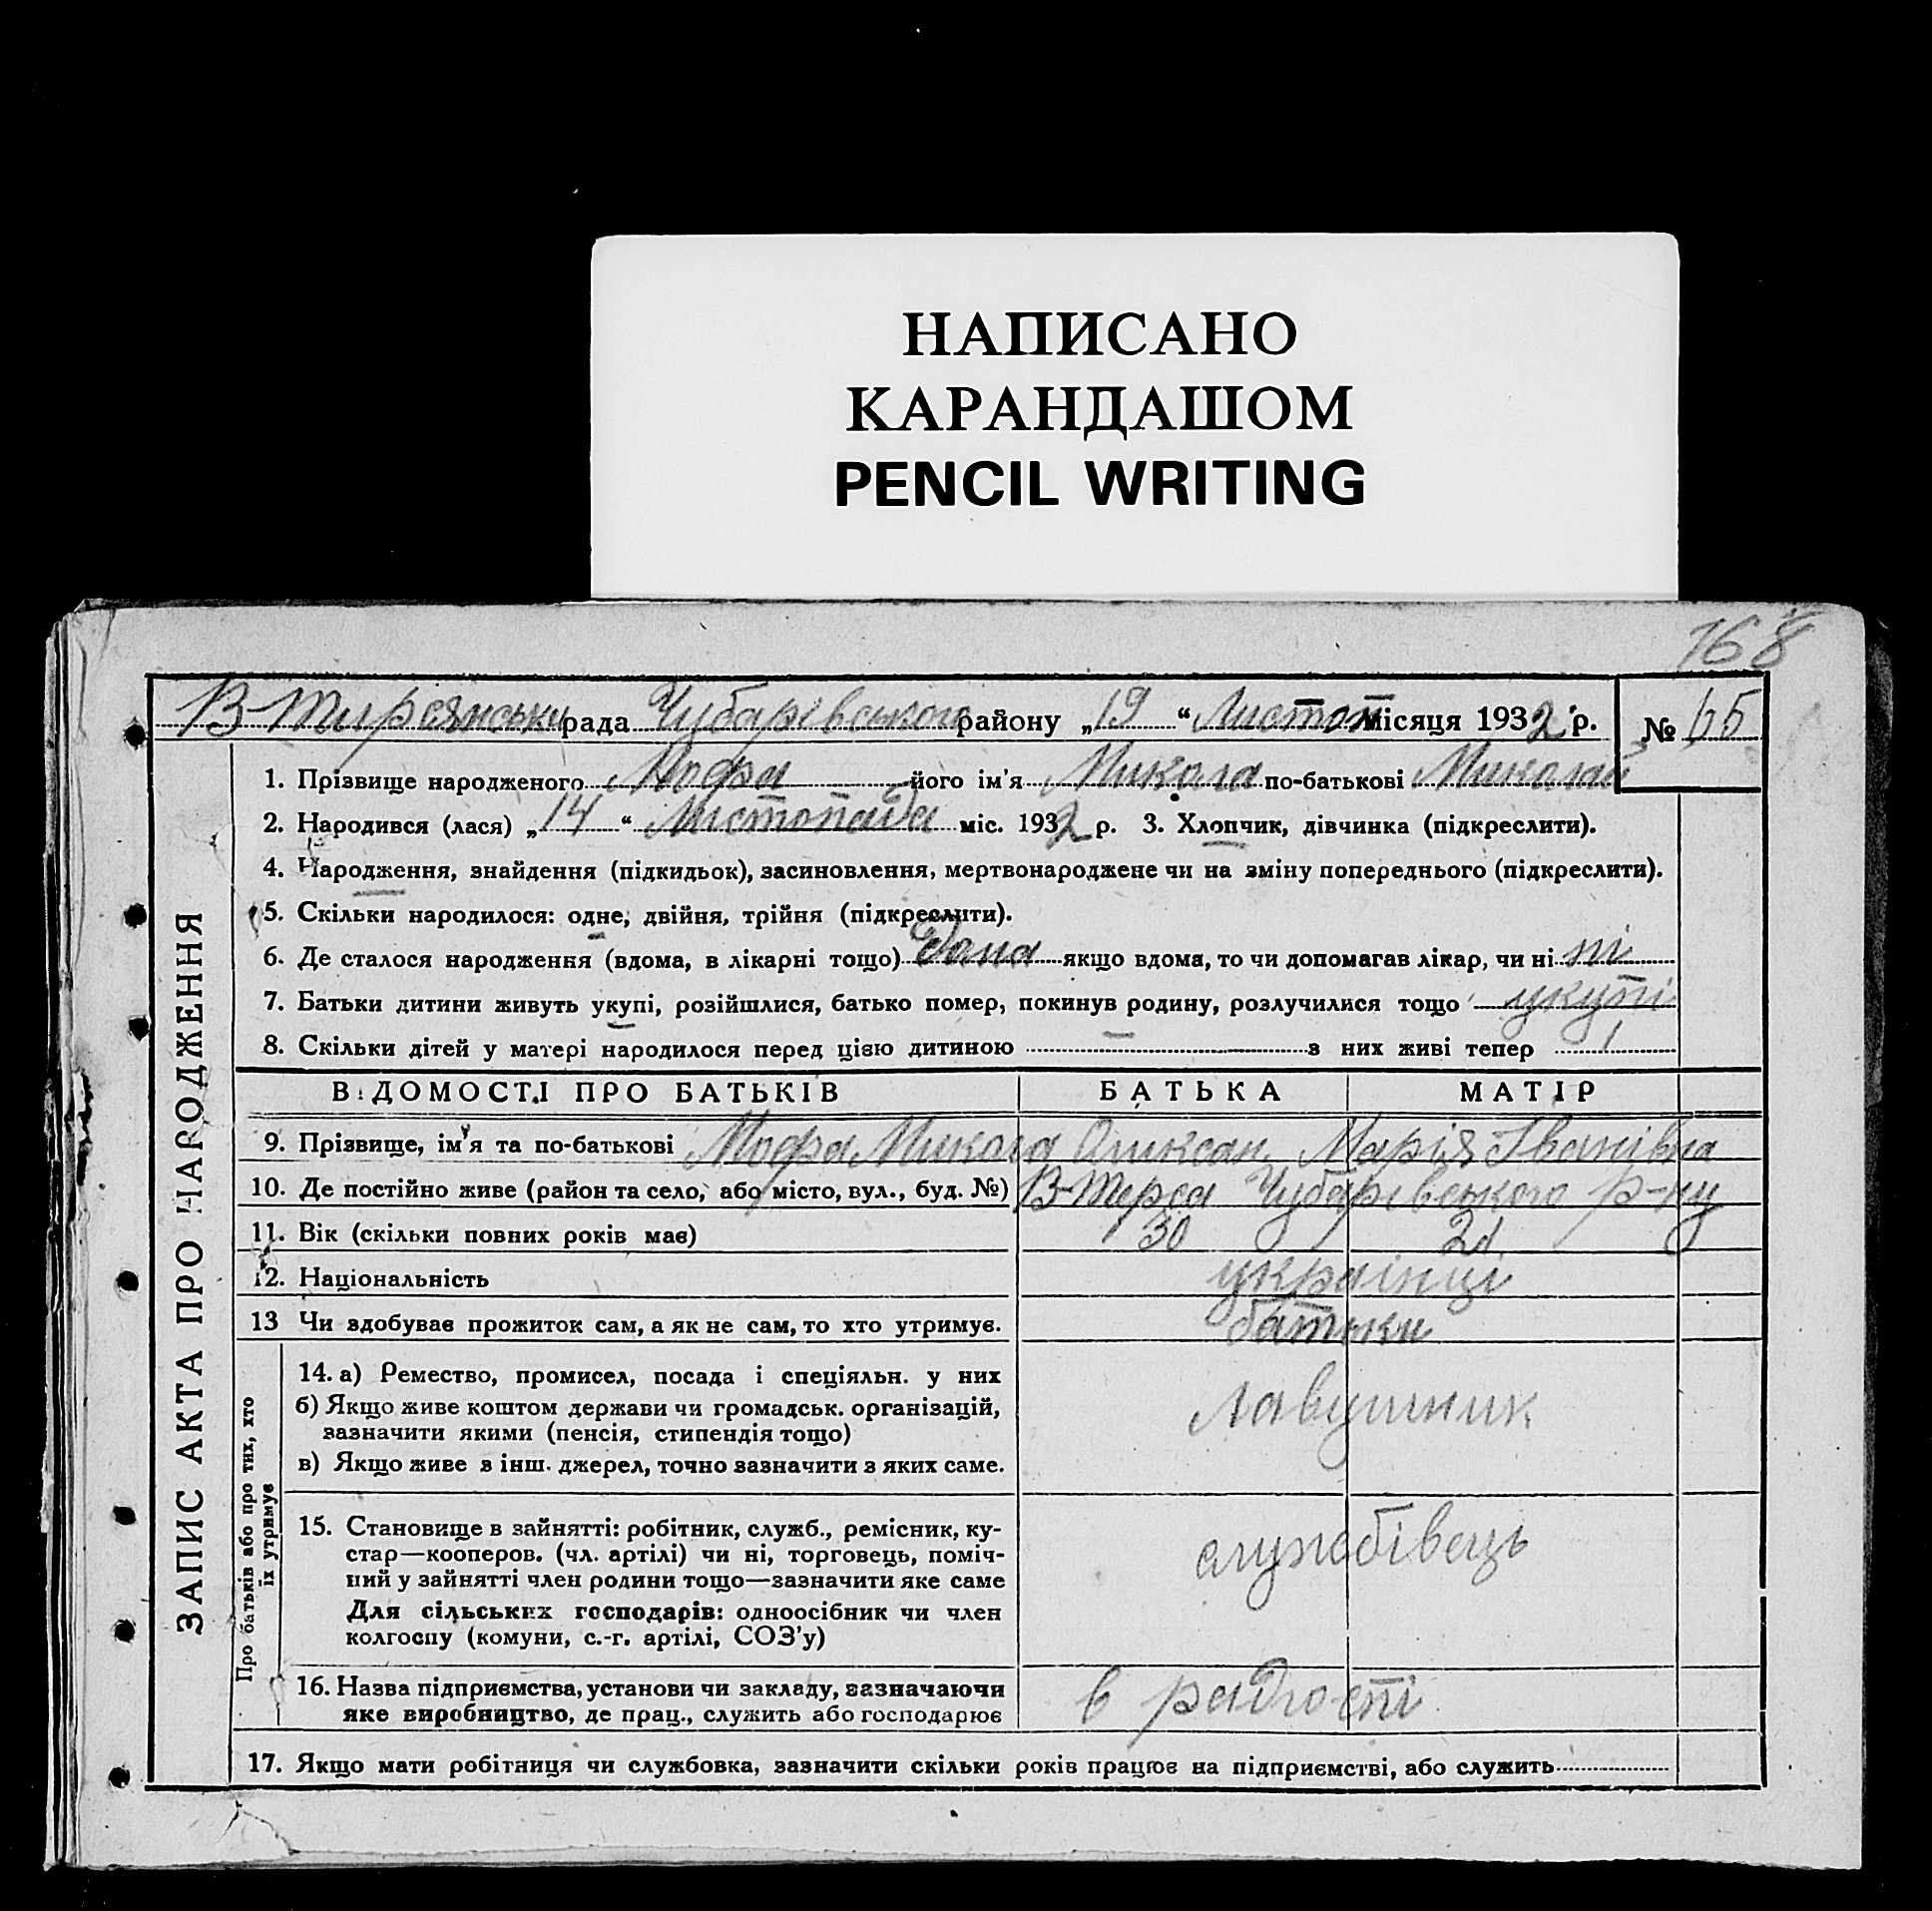 НАПИСАНО
КАРАНДАШОМ
PENCIL WRITING
168
В-Тирсянськи рада Чубарівського району „19“ Листоп місяця 1932 р. № 65
ЗАПИС АКТА ПРО НАРОДЖЕННЯ
1. Прізвище народженого Мофа його ім'я Микола по-батькові Миколай
2. Народився (лася) „14“ Листопада міс. 1932 р. 3. Хлопчик, дівчинка (підкреслити).
4. Народження, знайдення (підкидьок), засиновлення, мертвонароджене чи на зміну попереднього (підкреслити).
5. Скільки народилося: одне, двійня, трійня (підкреслити).
6. Де сталося народження (вдома, в лікарні тощо) дома якщо вдома, то чи допомагав лікар, чи ні ні
7. Батьки дитини живуть укупі, розійшлися, батько помер, покинув родину, розлучилися тощо укупі
8. Скільки дітей у матері народилося перед цією дитиною — з них живі тепер 1
ВІДОМОСТІ ПРО БАТЬКІВ БАТЬКА МАТІР
9. Прізвище, ім'я та по-батькові Мофа Микола Оликсан. Марія Іванівна
10. Де постійно живе (район та село, або місто, вул., буд. №) В-Терса Чубарівського р-ну
11. Вік (скільки повних років має) 30
12. Національність українці
13 Чи здобуває прожиток сам, а як не сам, то хто утримує. батьки
Про батьків або про тих, хто
їх утримує
14. а) Ремество, промисел, посада і спеціяльн. у них
б) Якщо живе коштом держави чи громадськ. організацій,
зазначити якими (пенсія, стипендія тощо)
в) Якщо живе з інш. джерел, точно зазначити з яких саме.
лавушник
15. Становище в зайнятті: робітник, служб., ремісник, ку-
стар—кооперов. (чл. артілі) чи ні, торговець, поміч-
ний у зайнятті член родини тощо—зазначити яке саме
Для сільських господарів: одноосібник чи член
колгоспу (комуни, с.-г. артілі, СОЗ'у)
служебівець
16. Назва підприємства, установи чи закладу, зазначаючи
яке виробництво, де прац., служить або господарює
в радгоспі
17. Якщо мати робітниця чи службовка, зазначити скільки років працює на підприємстві, або служить